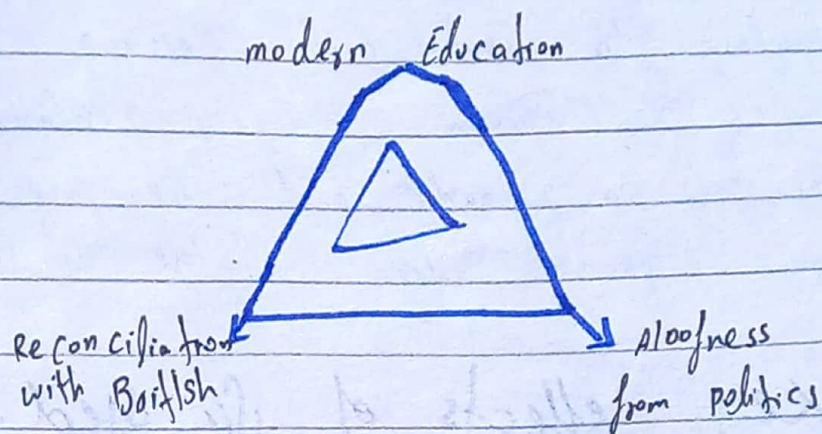 modern Education
Reconciliation
with British
Aloofness
from politics